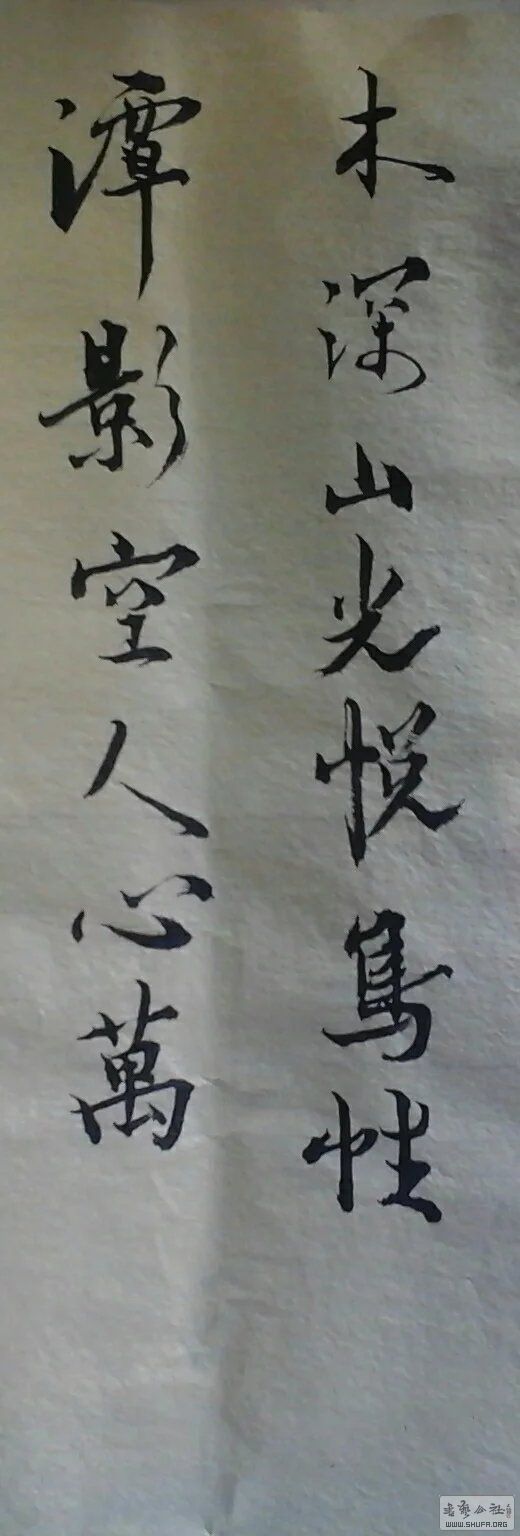 木深山光悦鳥性
潭影空人心萬
书艺公社
WWW.SHUFA.ORG